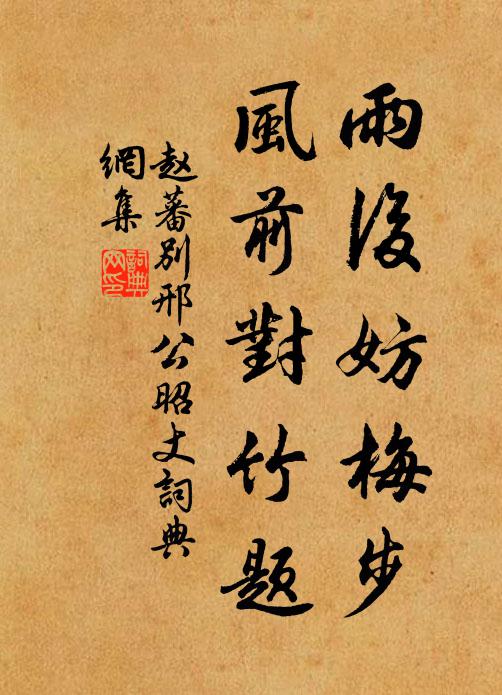 雨後妨梅步
風前對竹题
赵蕃别邢公昭丈詞典
網集
詞典
网印